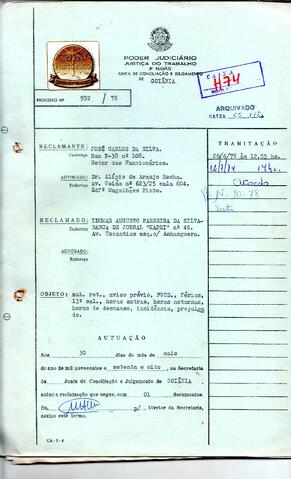 PODER JUDICIÁRIO
JUSTIÇA DO TRABALHO
3ª REGIÃO
JUNTA DE CONCILIAÇÃO E JULGAMENTO
DE GOIÂNIA
CAIXA
H74
PROCESSO Nº 952 / 78
ARQUIVADO
CAIXA
RECLAMANTE: JOSÉ CARLOS DA SILVA.
Endereço Rua P-38 nº 108.
Setor dos Funcionários.
ADVOGADO: Dr. Alípio de Araujo Rocha.
Endereço Av. Goiás nº 623/25 sala 604.
Edfº Magalhães Pinto.
RECLAMADO: IDEMAR AUGUSTO PARREIRA DA SILVA-
Endereço BANCA DE JORNAL "KAPRI" nº 46.
Av. Tocantins esq.c/ Anhanguera.
ADVOGADO:
Endereço
OBJETO: sal. ret., aviso prévio, FGTS., férias,
13º sal., horas extras, horas noturnas,
horas de descanso, incidência, prejulga
do.
TRAMITAÇÃO
26/6/78 às 12.55 hs.
AUTUAÇÃO
Aos 30 dias do mês de maio
do ano de mil novecentos e setenta e oito, na Secretaria
da Junta de Conciliação e Julgamento de GOIÂNIA
autuo a reclamação que segue, com 01 documentos.
Eu, p/ Diretor da Secretaria,
assino este termo.